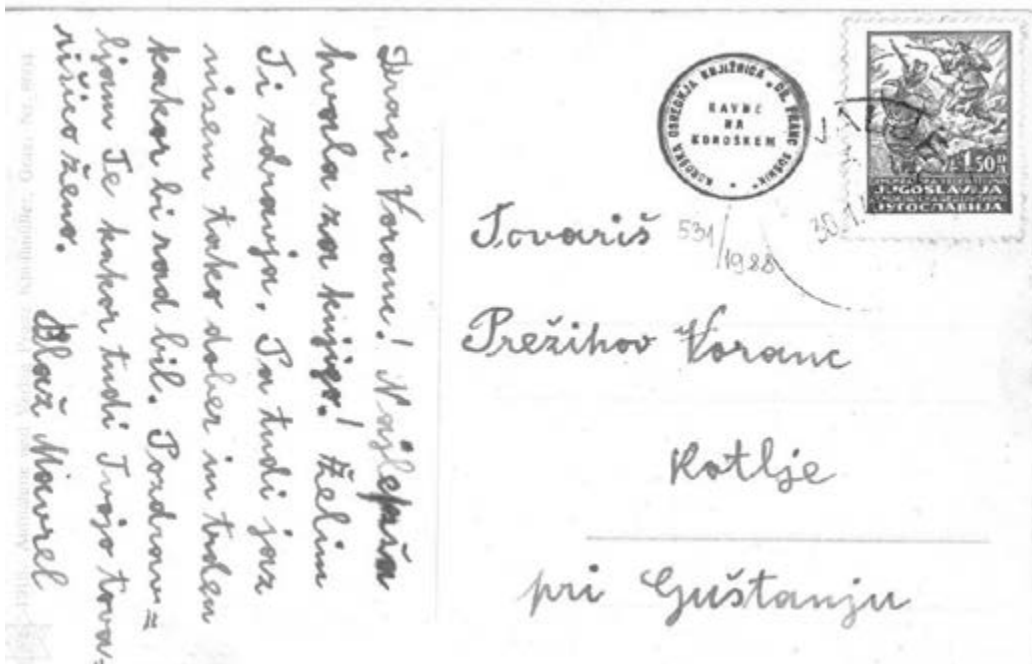 Dragi Voranc! Najlepša
hvala za knjigo! Želim
Ti zdravja. Pa tudi jaz
nisem tako dober in trden
kakor bi rad bil. Pozdrav=
ljam Te kakor tudi Tvojo tova-
rišico ženo.
Blaž Mavrel
KOROŠKA OSREDNJA KNJIŽNICA "DR. FRANC SUŠNIK"
RAVNE
NA
KOROŠKEM
531/1988
1.50
JUGOSLAVIJA
ЈУГОСЛАВИЈА
Tovariš
Prežihov Voranc
Kotlje
pri Guštanju